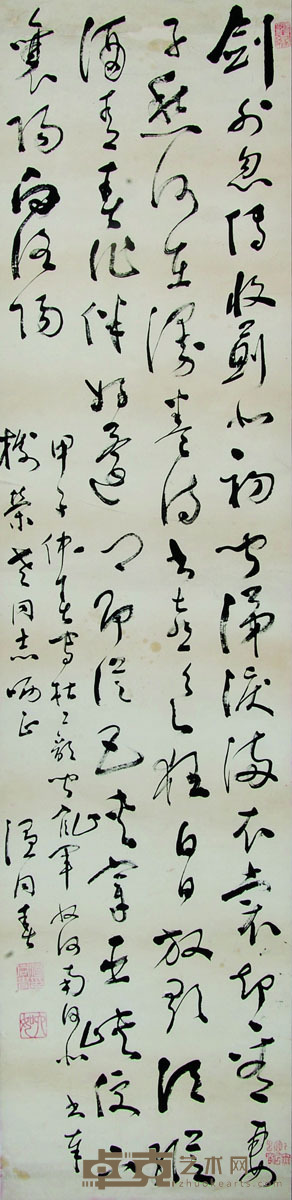 剑外忽传收蓟北初闻涕泪满衣裳却看妻
子愁何在漫卷诗书喜欲狂白日放歌须纵
酒青春作伴好还乡即从巴峡穿巫峡便下
襄阳向洛阳
甲子仲春写杜工部闻官军收河南河北书奉
树荣老同志哂正 温同春
卓克艺术网